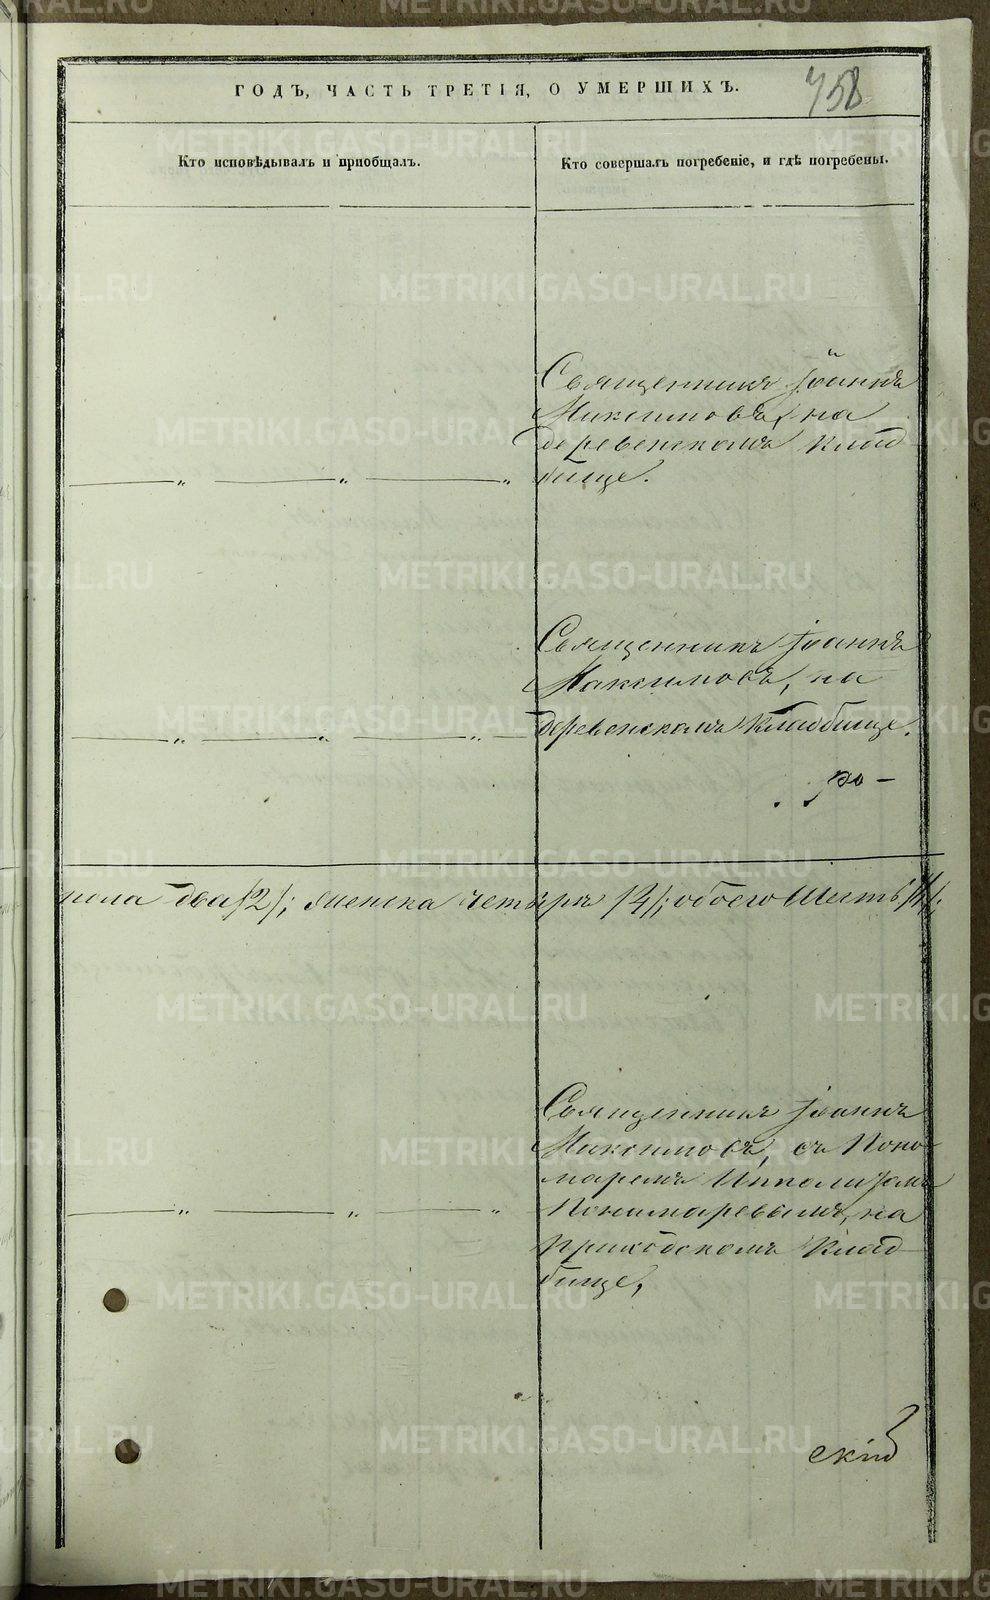 ГОДЪ, ЧАСТЬ ТРЕТІЯ, О УМЕРШИХЪ.
758
Кто исповѣдывалъ и пріобщалъ.
Кто совершалъ погребеніе, и гдѣ погребены.
Священникъ Іоаннъ
Максимовъ, на
деревенскомъ клад-
бище.
Священникъ Іоаннъ
Максимовъ, на
деревенскомъ кладбище.
ро-
пола два /2/; женска четыре /4/; обоего шесть /6/;
Священникъ Іоаннъ
Максимовъ, съ Поно-
маремъ Ипполитомъ
Пономаревымъ, на
приходскомъ клад-
бище,
скій
METRIKI.GASO-URAL.RU